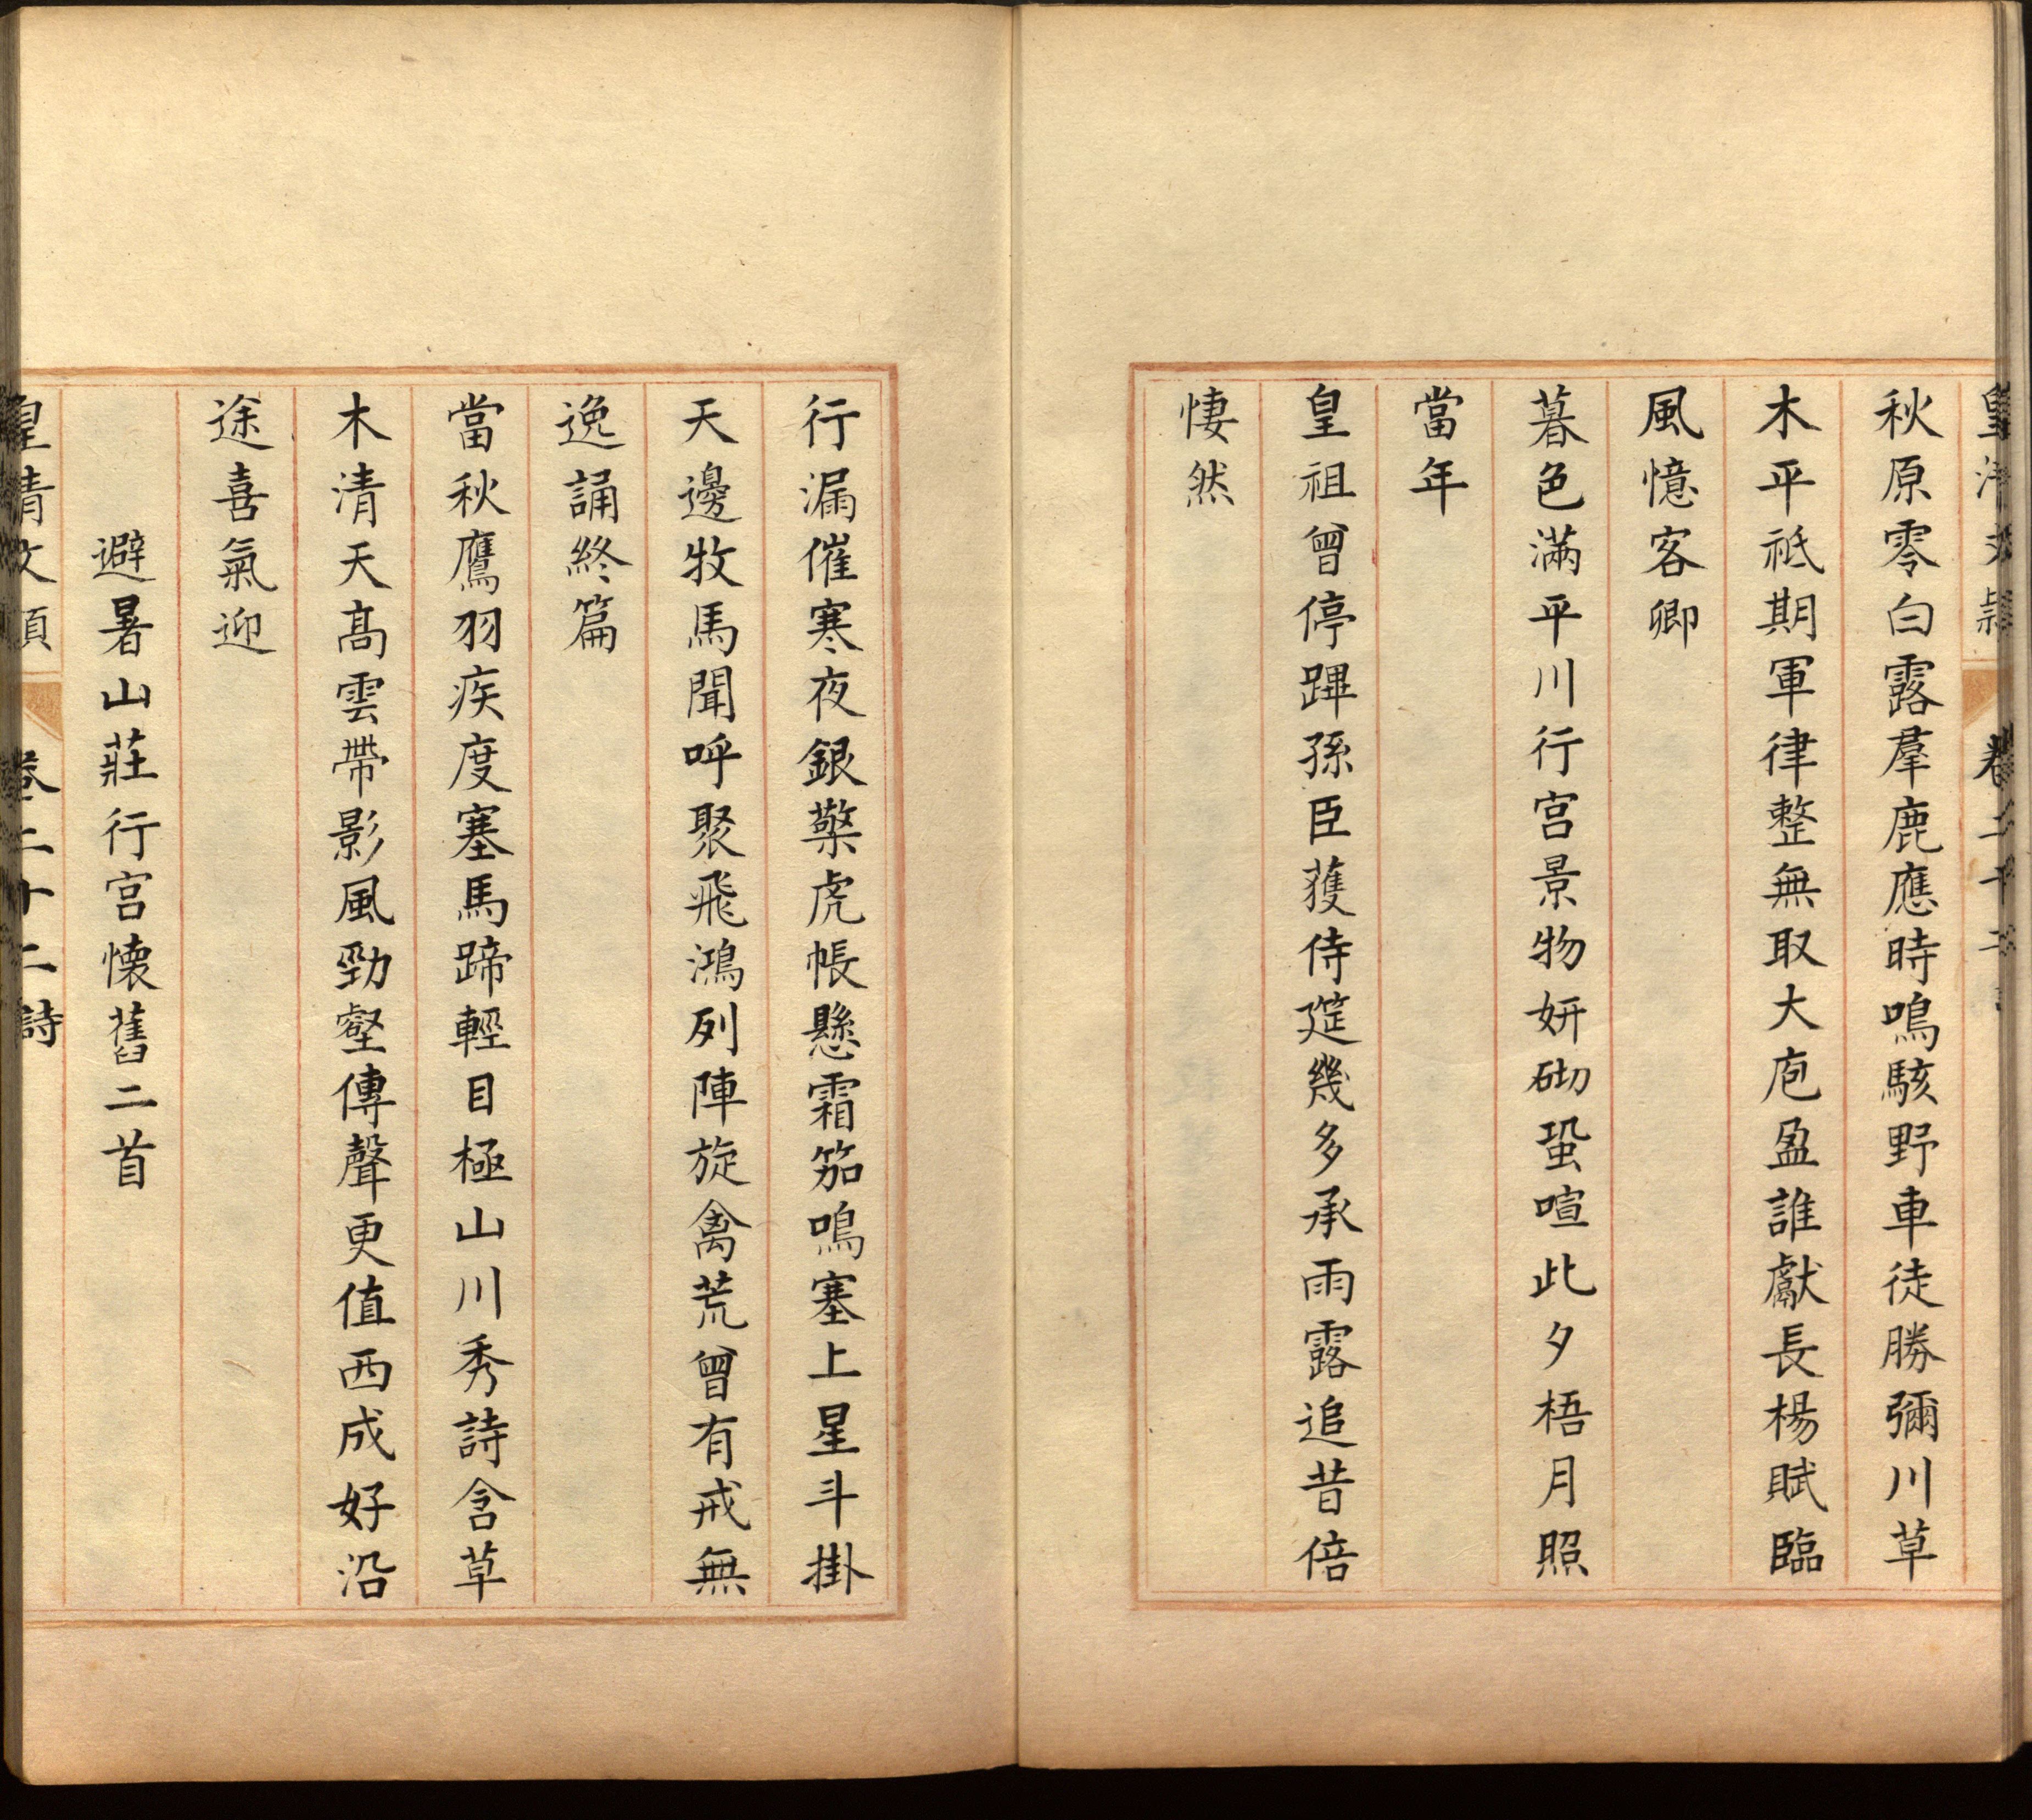 秋原零白露羣鹿應時鳴駭野車徒勝彌川草
木平祗期軍律整無取大庖盈誰獻長楊賦臨
風憶客卿
暮色滿平川行宮景物妍砌蛩喧此夕梧月照
當年
皇祖曾停蹕孫臣獲侍筵幾多承雨露追昔倍
悽然
行漏催寒夜銀檠虎帳懸霜笳鳴塞上星斗掛
天邊牧馬聞呼聚飛鴻列陣旋禽荒曾有戒無
逸誦終篇
當秋鷹羽疾度塞馬蹄輕目極山川秀詩含草
木清天高雲帶影風勁壑傳聲更值西成好沿
途喜氣迎
避暑山莊行宮懷舊二首
皇清文頴 卷二十二 詩